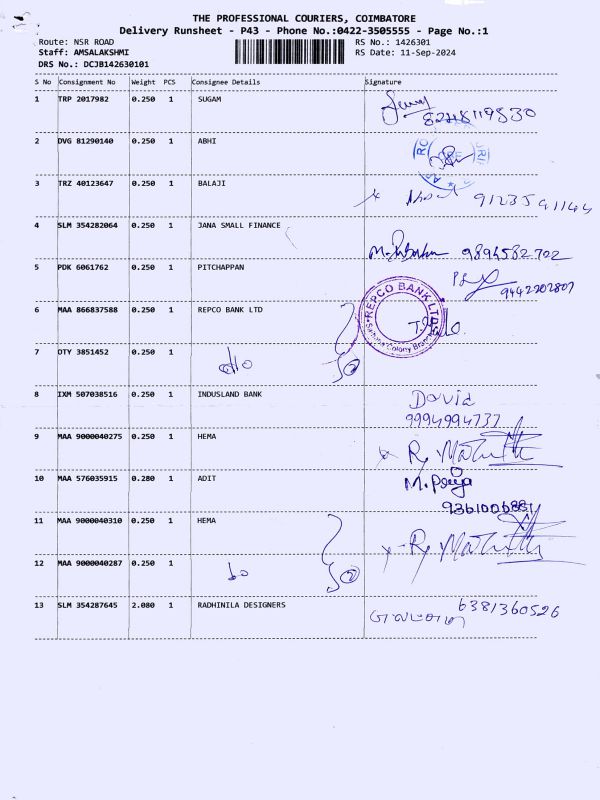 THE PROFESSIONAL COURIERS, COIMBATORE
Delivery Runsheet - P43 - Phone No.:0422-3505555 - Page No.:1
Route: NSR ROAD RS No.: 1426301
Staff: AMSALAKSHMI RS Date: 11-Sep-2024
DRS No.: DCJB142630101
S No Consignment No Weight PCS Consignee Details Signature
1 TRP 2017982 0.250 1 SUGAM
8248119530
2 DVG 81290140 0.250 1 ABHI
3 TRZ 40123647 0.250 1 BALAJI
9123591144
4 SLM 354282064 0.250 1 JANA SMALL FINANCE
9894582702
5 PDK 6061762 0.250 1 PITCHAPPAN
9442202807
6 MAA 866837588 0.250 1 REPCO BANK LTD
REPCO BANK LTD
Colony Branch
7 OTY 3851452 0.250 1
8 IXM 507038516 0.250 1 INDUSLAND BANK
David
9994994737
9 MAA 9000040275 0.250 1 HEMA
10 MAA 576035915 0.280 1 ADIT
M. Priya
9361006881
11 MAA 9000040310 0.250 1 HEMA
12 MAA 9000040287 0.250 1
13 SLM 354287645 2.080 1 RADHINILA DESIGNERS
6381360526